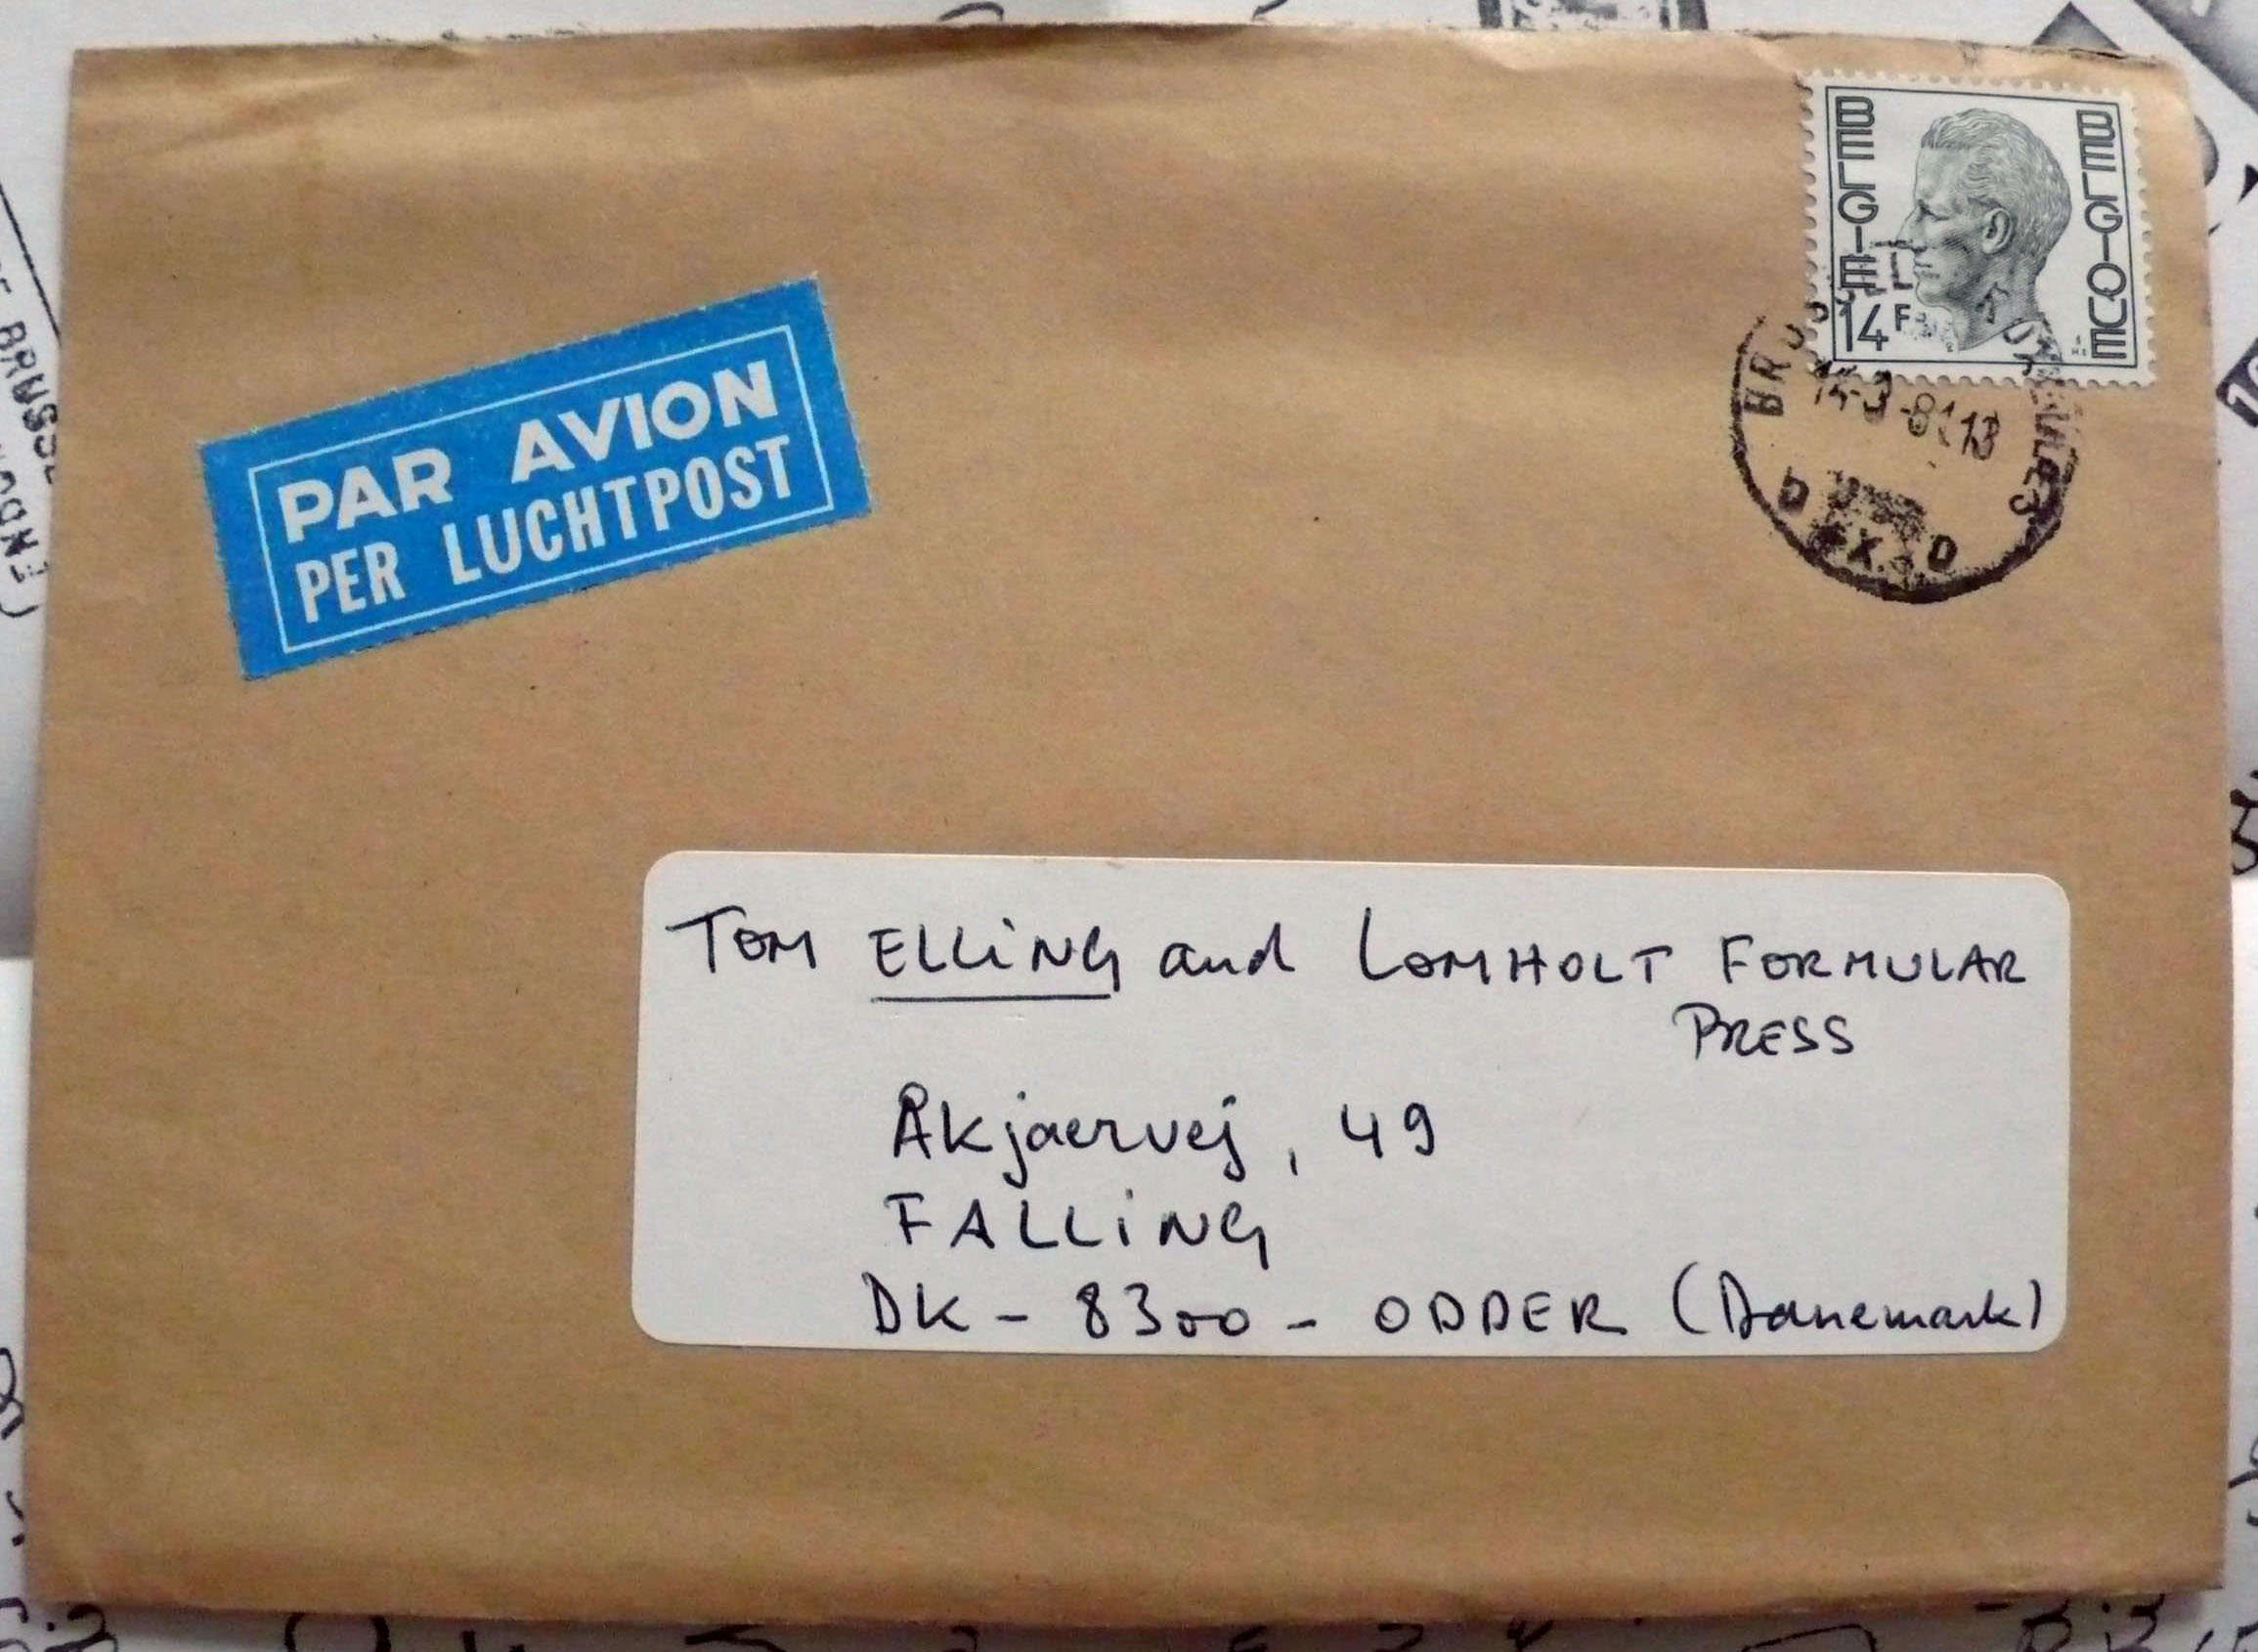 BELGIË
BELGIQUE
14 F
14-3-81 13
PAR AVION
PER LUCHTPOST
TOM ELLING and LOMHOLT FORMULAR
PRESS
Åkjaervej, 49
FALLING
DK - 8300 - ODDER (Danemark)